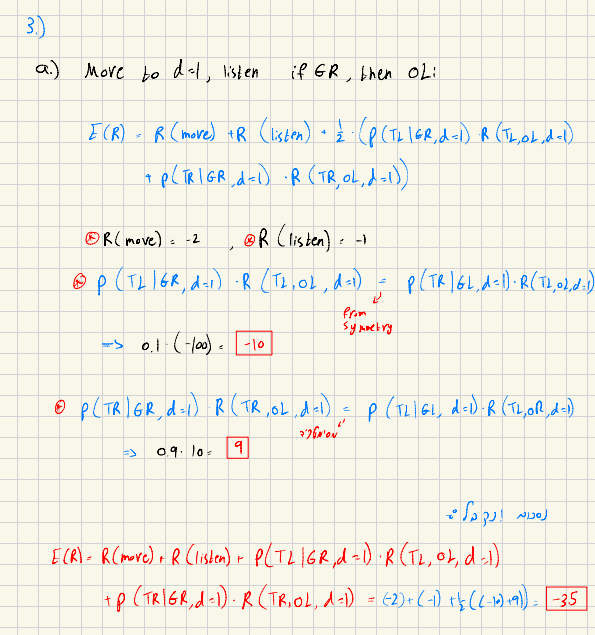 3.)
a.) Move to d=1, listen if GR, then OL:
E(R) = R(move) + R(listen) + 1/2 · (P(TL|GR,d=1) · R(TL,OL,d=1)
+ P(TR|GR,d=1) · R(TR,OL,d=1))
⊛ R(move) = -2 , ⊛ R(listen) = -1
⊛ P(TL|GR,d=1) · R(TL,OL,d=1) = P(TR|GL,d=1) · R(TL,OL,d=1)
from
symmetry
=> 0.1 · (-100) = -10
⊛ P(TR|GR,d=1) · R(TR,OL,d=1) = P(TL|GL,d=1) · R(TL,OR,d=1)
סימטריה
=> 0.9 · 10 = 9
נסכום ונקבל:
E(R) = R(move) + R(listen) + P(TL|GR,d=1) · R(TL,OL,d=1)
+ P(TR|GR,d=1) · R(TR,OL,d=1) = (-2)+(-1)+1/2((-10)+9)) = -3.5